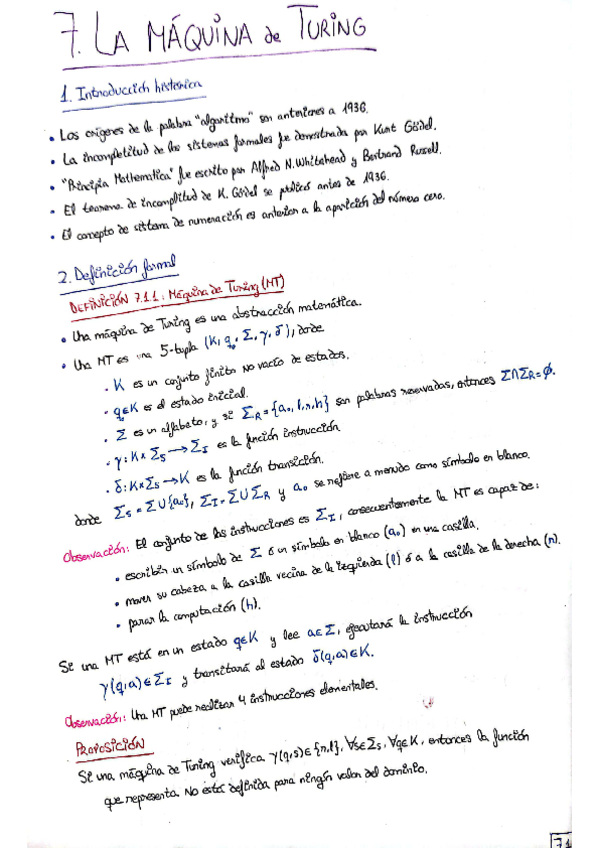 7. LA MÁQUINA de TURING
1. Introducción histórica
• Los orígenes de la palabra "algoritmo" son anteriores a 1936.
• La incompletitud de los sistemas formales fue demostrada por Kurt Gödel.
• "Principia Mathematica" fue escrito por Alfred N. Whitehead y Bertrand Russell.
• El teorema de incomplitud de K. Gödel se publicó antes de 1936.
• El concepto de sistema de numeración es anterior a la aparición del número cero.
2. Definición formal
DEFINICIÓN 7.1.1: Máquina de Turing (MT)
• Una máquina de Turing es una abstracción matemática.
• Una MT es una 5-tupla (K, q₀, Σ, γ, δ), donde
· K es un conjunto finito no vacío de estados.
· q₀∈K es el estado inicial.
· Σ es un alfabeto, y si Σ_R = {a₀, l, r, h} son palabras reservadas, entonces Σ∩Σ_R = ∅.
· γ: K×Σ_S → Σ_I es la función instrucción
· δ: K×Σ_S → K es la función transición.
donde Σ_S = Σ∪{a₀}, Σ_I = Σ∪Σ_R y a₀ se refiere a menudo como símbolo en blanco.
Observación: El conjunto de las instrucciones es Σ_I, consecuentemente la MT es capaz de:
• escribir un símbolo de Σ ó un símbolo en blanco (a₀) en una casilla.
• mover su cabeza a la casilla vecina de la izquierda (l) ó a la casilla de la derecha (r).
• parar la computación (h).
Si una MT está en un estado q∈K y lee a∈Σ, ejecutará la instrucción
γ(q,a)∈Σ_I y transitará al estado δ(q,a)∈K.
Observación: Una MT puede realizar 4 instrucciones elementales.
PROPOSICIÓN
Si una máquina de Turing verifica γ(q,s)∈{r,l}, ∀s∈Σ_S, ∀q∈K, entonces la función
que representa no está definida para ningún valor del dominio.
71